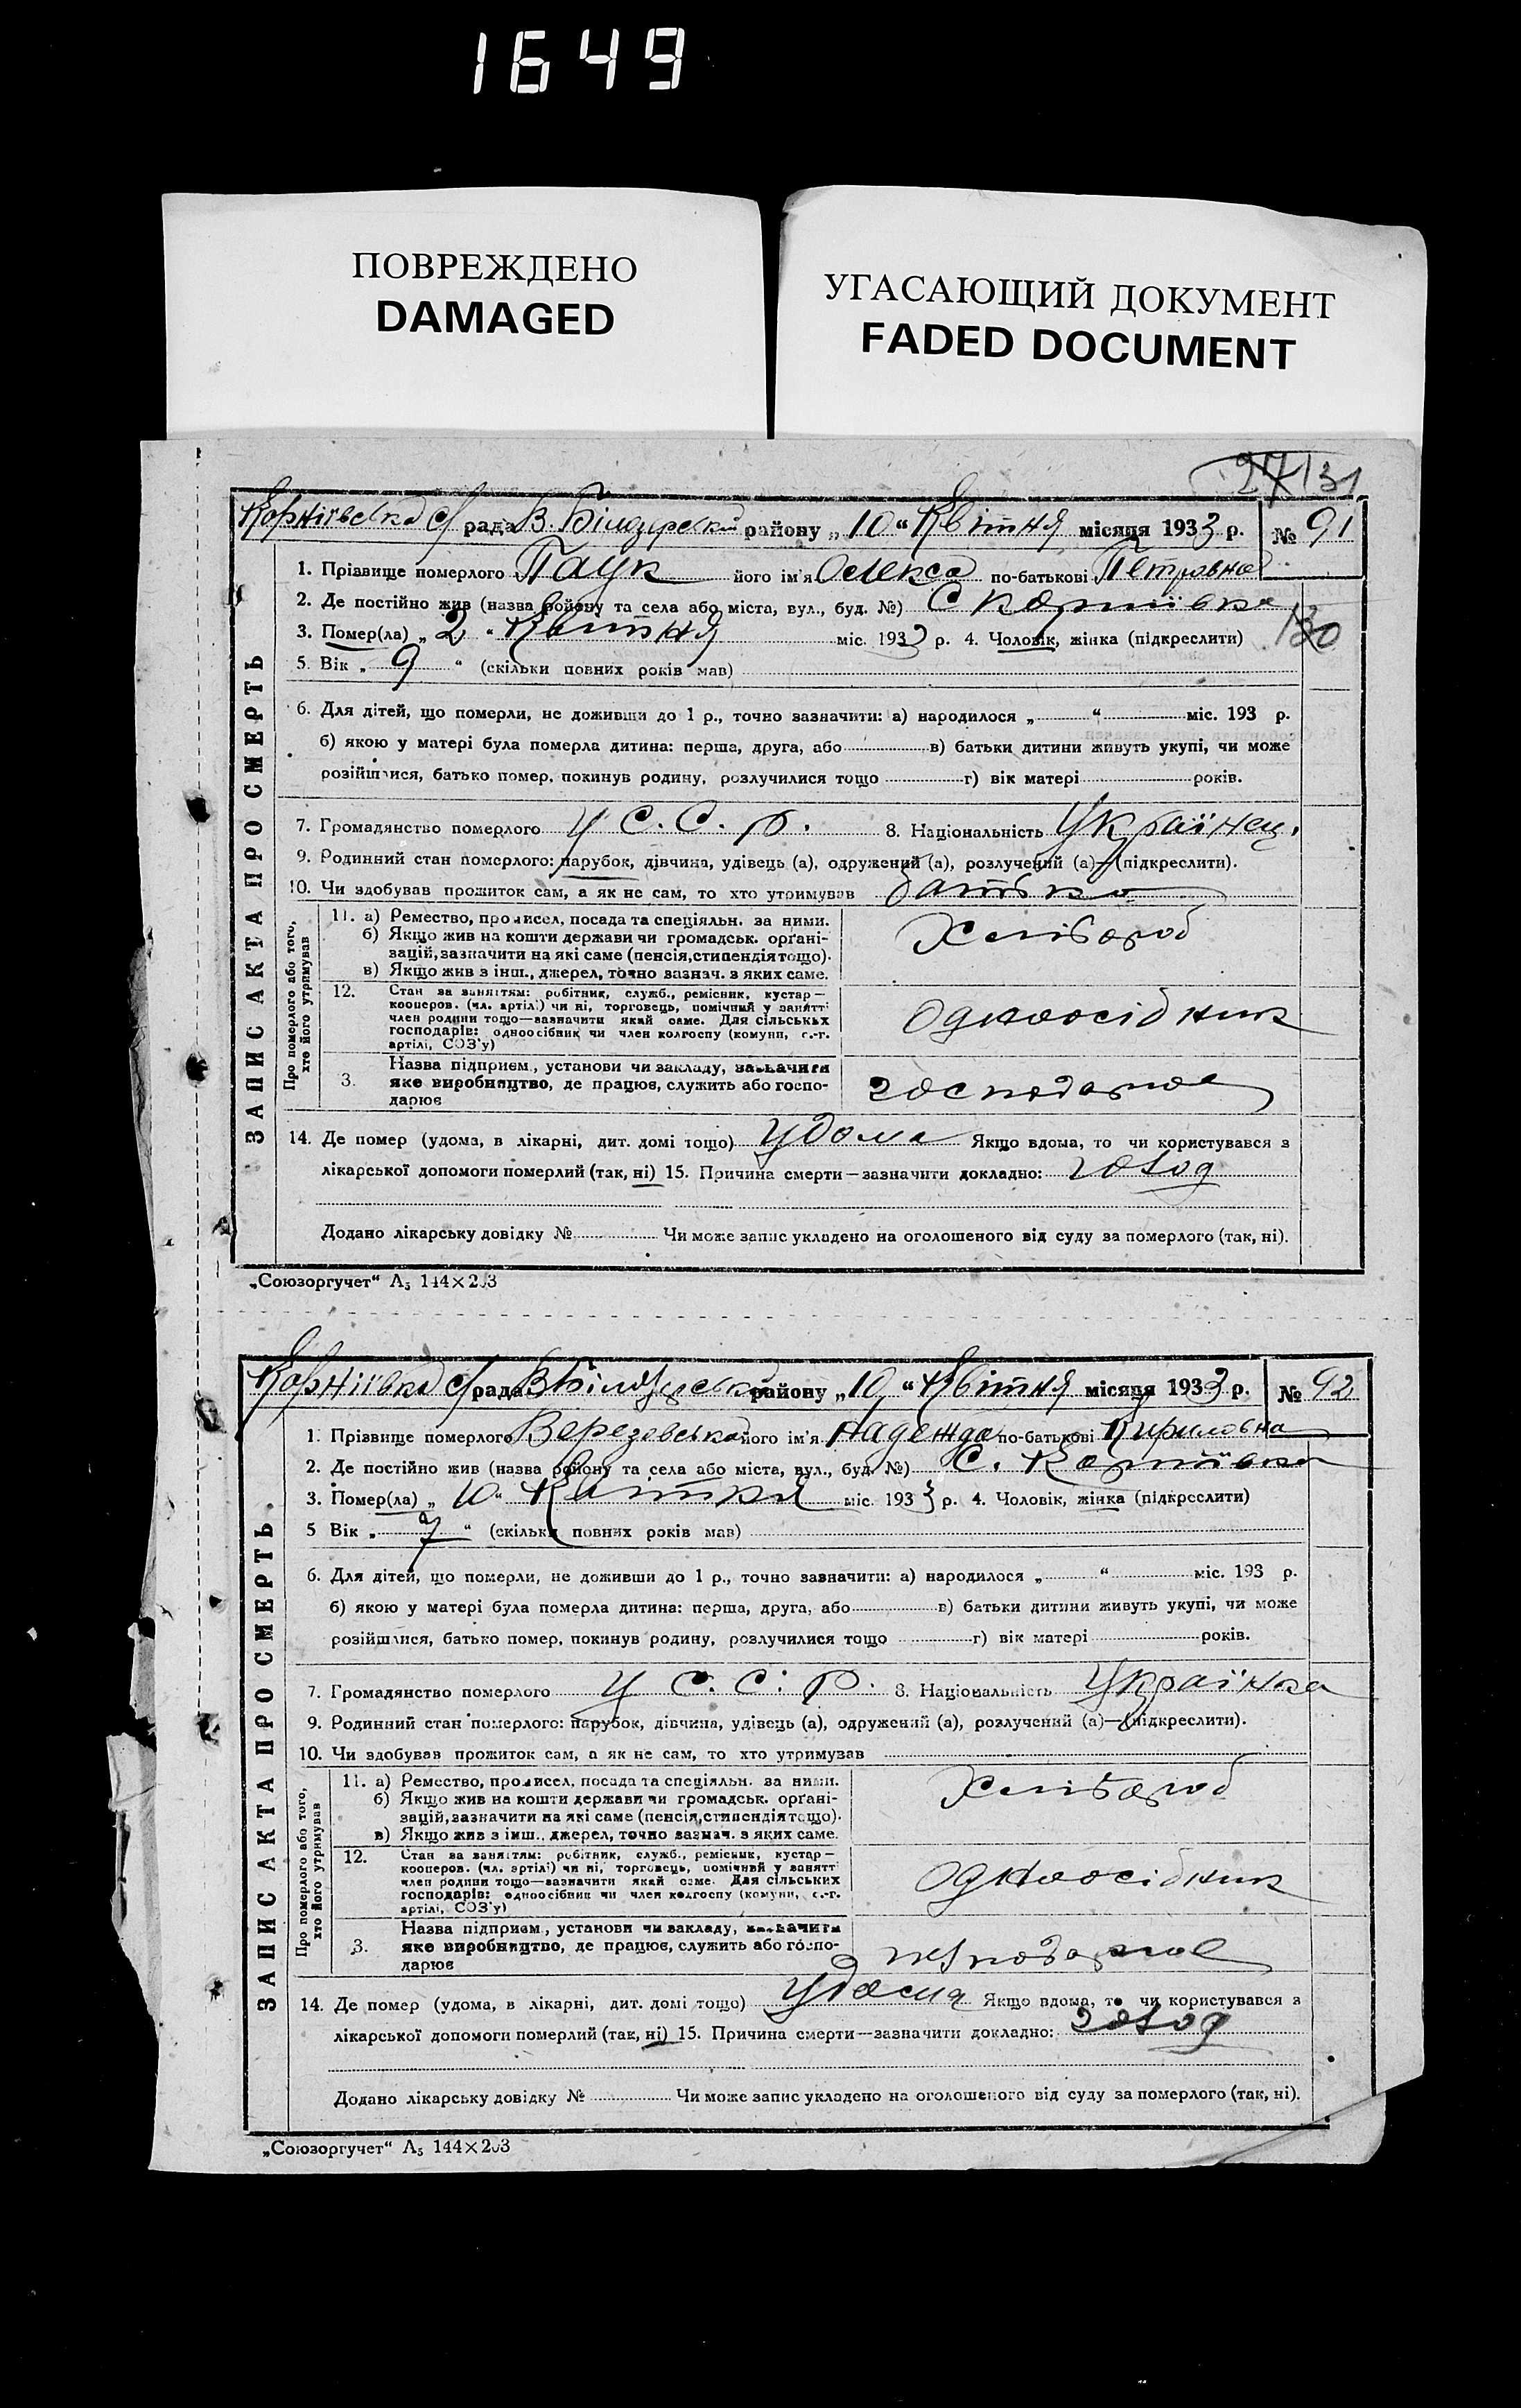 1649
ПОВРЕЖДЕНО
DAMAGED
УГАСАЮЩИЙ ДОКУМЕНТ
FADED DOCUMENT
27 131
Корніївська с/рада В. Білозірський району „10“ Квітня місяця 1933 р. № 91
1. Прізвище померлого Паук його ім'я Олекса по-батькові Петровна
2. Де постійно жив (назва району та села або міста, вул., буд. №) С Корніївка
3. Помер(ла) „2“ Квітня міс. 1933 р. 4. Чоловік, жінка (підкреслити) 130
5. Вік „9“ (скільки повних років мав)
6. Для дітей, що померли, не доживши до 1 р., точно зазначити: а) народилося „ “ міс. 193 р.
б) якою у матері була померла дитина: перша, друга, або в) батьки дитини живуть укупі, чи може
розійшлися, батько помер, покинув родину, розлучилися тощо г) вік матері років.
7. Громадянство померлого У С. С. Р. 8. Національність Українец.
9. Родинний стан померлого: парубок, дівчина, удівець (а), одружений (а), розлучений (а)—(підкреслити).
10. Чи здобував прожиток сам, а як не сам, то хто утримував батько
ЗАПИС АКТА ПРО СМЕРТЬ
Про померлого або того, хто його утримував
11. а) Ремество, промисел, посада та спеціяльн. за ними. Хлібороб
б) Якщо жив на кошти держави чи громадськ. орґані-
зацій, зазначити на які саме (пенсія, стипендія тощо).
в) Якщо жив з інш., джерел, точно вазнач. з яких саме.
12. Стан за заняттям: робітник, служб., ремісник, кустар—
кооперов. (чл. артілі) чи ні, торговець, помічний у занятті
член родини тощо—зазначити який саме. Для сільських Одноосібник
господарів: одноосібник чи член колгоспу (комуни, с.-г.
артілі, СОЗ'у)
Назва підприєм., установи чи закладу, зазначити
3. яке виробництво, де працює, служить або госпо- господарює
дарює
14. Де помер (удома, в лікарні, дит. домі тощо) Удома Якщо вдома, то чи користувався з
лікарської допомоги померлий (так, ні) 15. Причина смерти—зазначити докладно: голод
Додано лікарську довідку № Чи може запис укладено на оголошеного від суду за померлого (так, ні).
„Союзоргучет“ А5 144×203
Корніївка с/рада В Білозірський району „10“ Квітня місяця 1933 р. № 92
1. Прізвище померлого Верезовська його ім'я Надежда по-батькові Кириловна
2. Де постійно жив (назва району та села або міста, вул., буд. №) С. Корніївка
3. Помер(ла) „10“ Квітня міс. 1933 р. 4. Чоловік, жінка (підкреслити)
5 Вік „7“ (скільки повних років мав)
6. Для дітей, що померли, не доживши до 1 р., точно зазначити: а) народилося „ “ міс. 193 р.
б) якою у матері була померла дитина: перша, друга, або в) батьки дитини живуть укупі, чи може
розійшлися, батько помер, покинув родину, розлучилися тощо г) вік матері років.
7. Громадянство померлого У С. С. Р. 8. Національність Українка
9. Родинний стан померлого: парубок, дівчина, удівець (а), одружений (а), розлучений (а)—(підкреслити).
10. Чи здобував прожиток сам, а як не сам, то хто утримував
ЗАПИС АКТА ПРО СМЕРТЬ
Про померлого або того, хто його утримував
11. а) Ремество, промисел, посада та спеціяльн. за ними. Хлібороб
б) Якщо жив на кошти держави чи громадськ. орґані-
зацій, зазначити на які саме (пенсія, стипендія тощо).
в) Якщо жив з інш., джерел, точно вазнач. з яких саме.
12. Стан за заняттям: робітник, служб., ремісник, кустар—
кооперов. (чл. артілі) чи ні, торговець, помічний у занятті
член родини тощо—зазначити який саме. Для сільських Одноосібник
господарів: одноосібник чи член колгоспу (комуни, с.-г.
артілі, СОЗ'у)
Назва підприєм., установи чи закладу, зазначити
3. яке виробництво, де працює, служить або госпо- господарює
дарює
14. Де помер (удома, в лікарні, дит. домі тощо) Удома Якщо вдома, то чи користувався з
лікарської допомоги померлий (так, ні) 15. Причина смерти—зазначити докладно: голод
Додано лікарську довідку № Чи може запис укладено на оголошеного від суду за померлого (так, ні).
„Союзоргучет“ А5 144×203